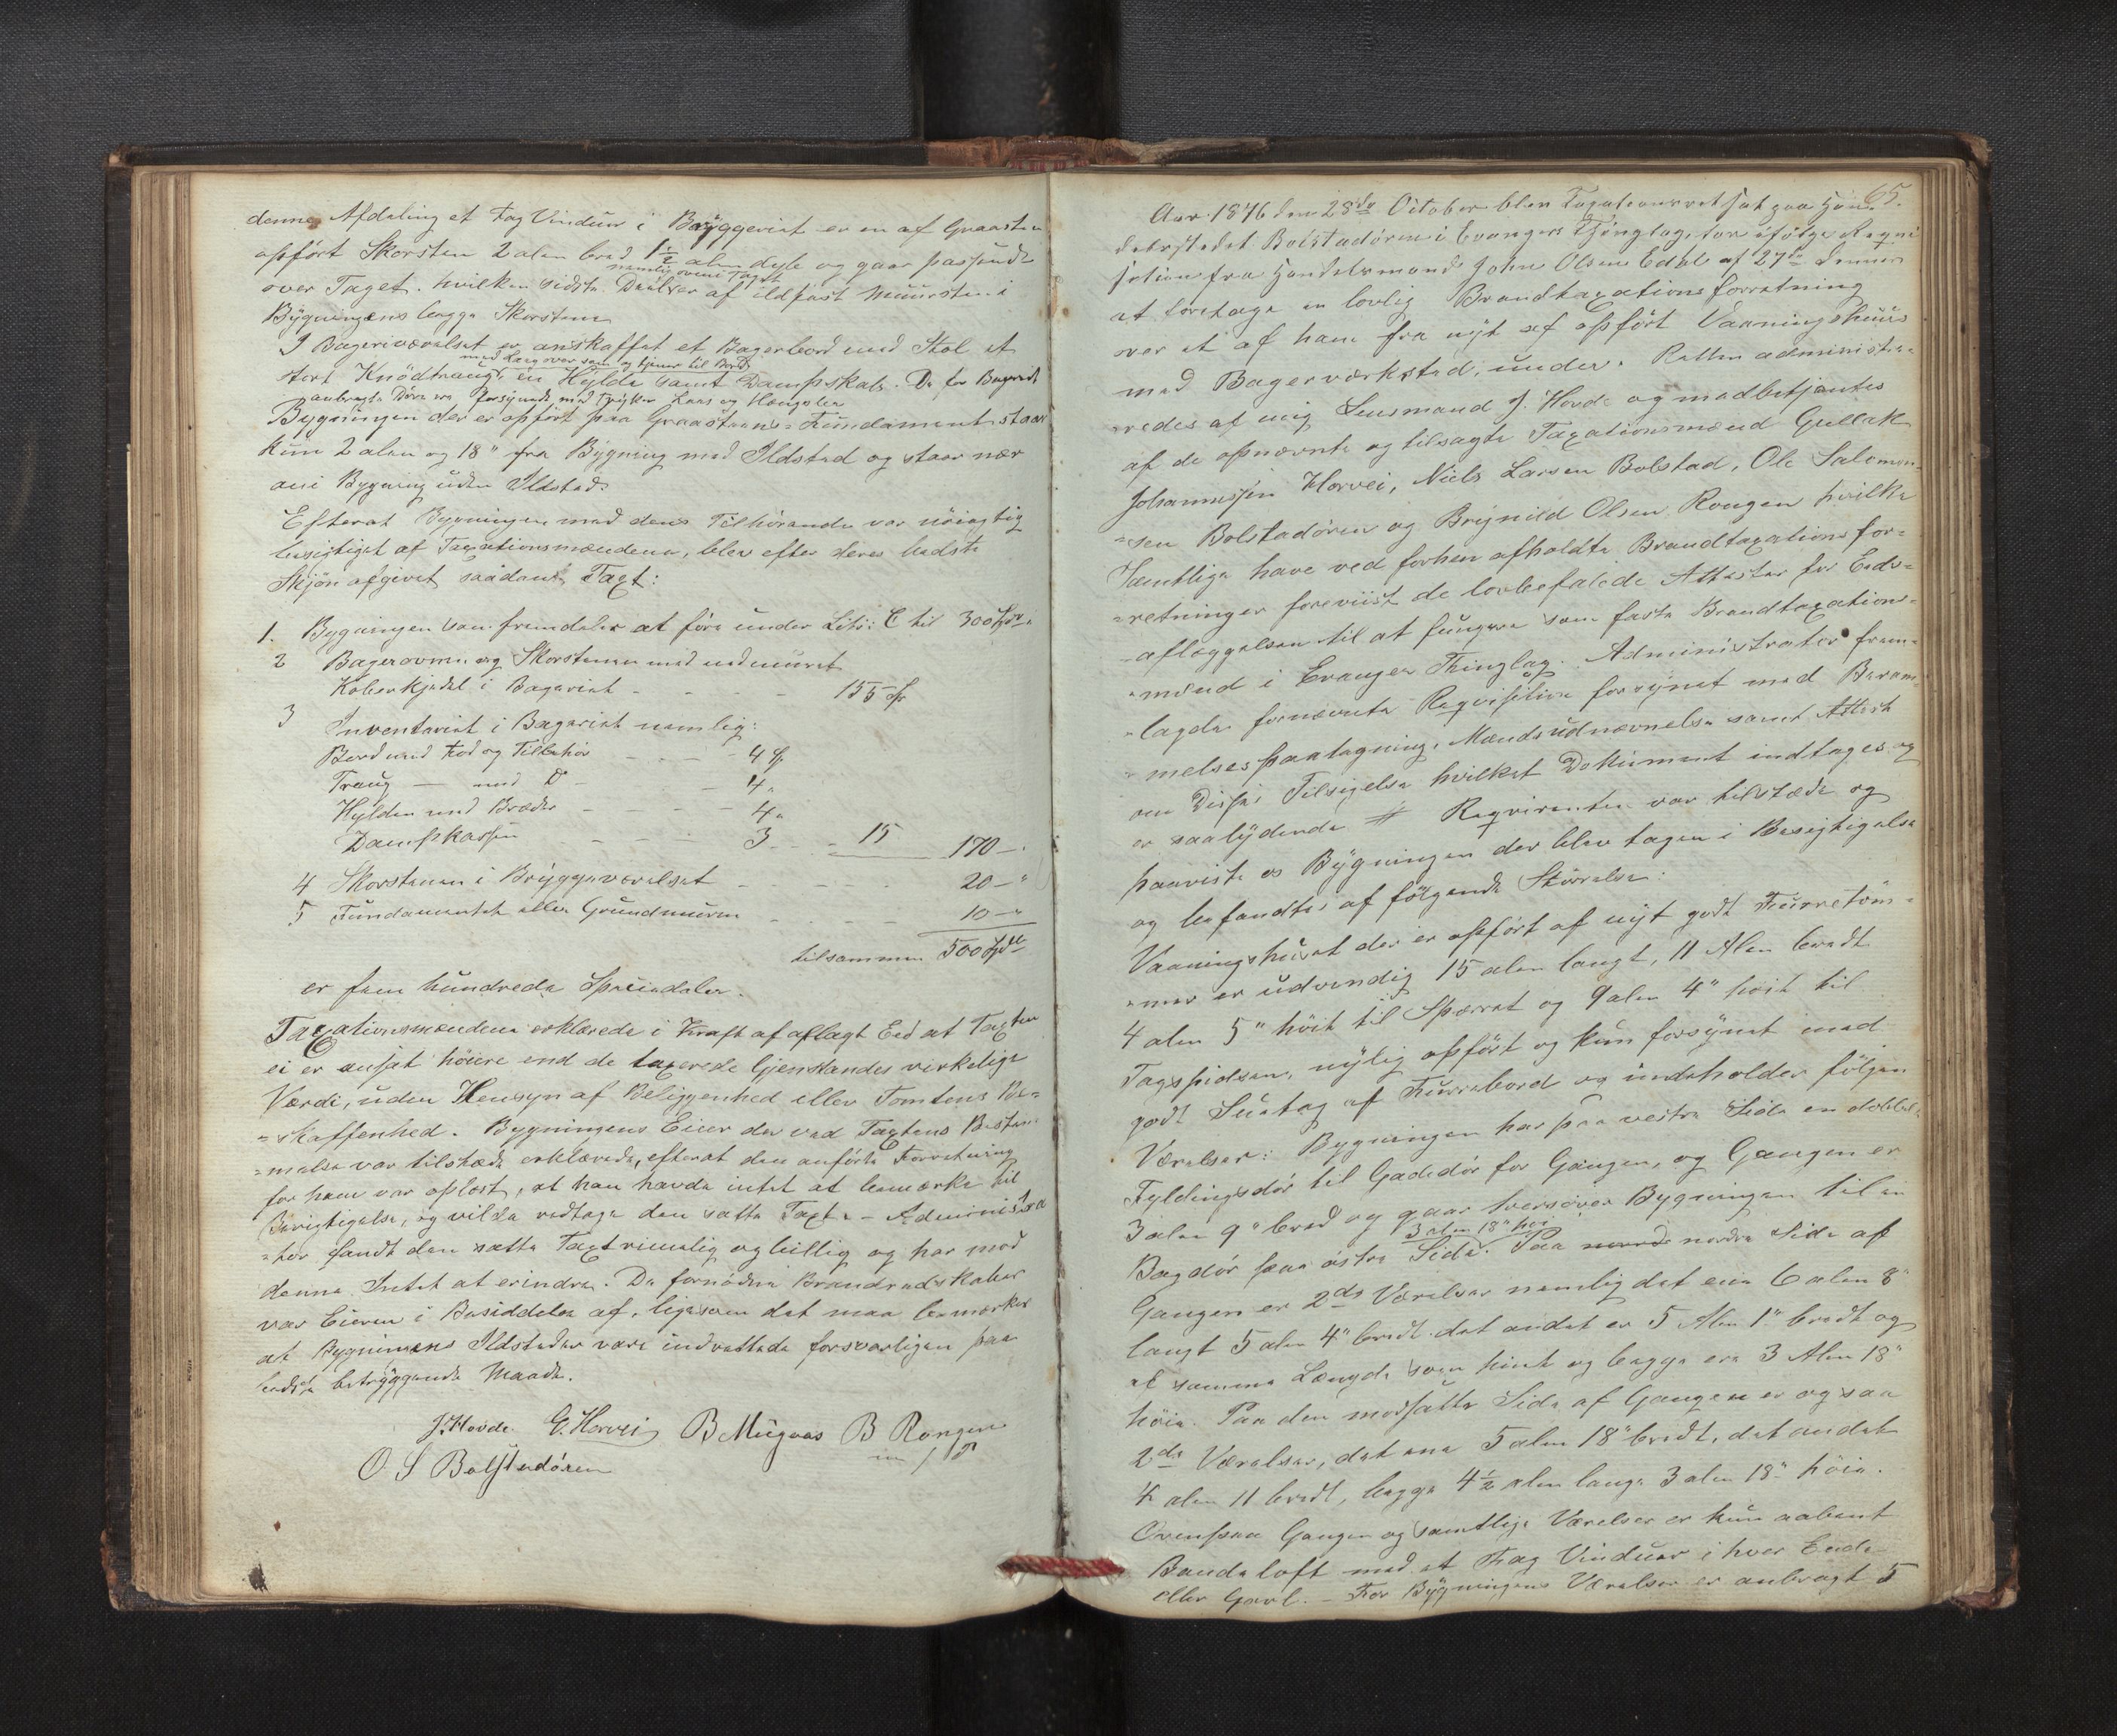 denne Afdeling et Fag Vinduer i Bryggeriet er en af Graasten
opført Skorsten 2 alen bred 1½ alen dyb og gaar passende
nemlig oveni Taget
over Taget. hvilken sidste Deel er af ildfast Muursten i
Bygningens begge Skorstene
I Bageriværelset er anskaffet et Bagerbord med Stol et
med Laag over som og tjener til Bord
stort Knödtraug, en Hylde samt Dampskab. De for Bageriet
anbragte Döre ere forsynede med Trykker Laas og Hængsler
Bygningen der er opført paa Graasteens-Fundament staar
kun 2 alen og 18" fra Bygning med Ildsted og staar nær
ani Bygning uden Ildsted.
Efterat Bygningen med dens Tilhörende var nöiagtig
besigtiget af Taxationsmændene, blev efter deres bedste
Skjön afgivet saadant Taxt:
1. Bygningen som fremdeles at före under Litr: C til 300 Spd
2 Bagerovnen og Skorstenen med indmuret
Kobberkjedel i Bageriet - - - - 155 Sp
3 Inventariet i Bageriet nemlig:
Bord med Fod og Tilbehör - - - 4 Sp
Traug — med D - - 4 "
Hylden med Bræder - - - - 4 "
Dampkassen - - - - 3 - - 15 170 -
4 Skorstenen i Bryggeværelset - - - - - 20 - "
5 Fundamentet eller Grundmuren - - - - 10 - "
tilsammen 500 Spdl
er fem hundrede Speciedaler.
Taxationsmændene erklærede i Kraft af aflagt Eed at Taxten
ei er ansat höiere end de taxerede Gjenstandes virkelige
Værdi, uden Hensyn af Beliggenhed eller Tomtens Be-
-skaffenhed. Bygningens Eier der ved Taxtens Bestem-
-melse var tilstæde erklærede, efterat den anförte Forretning
for ham var oplæst, at han havde intet at bemærke til
Berigtigelse, og vilde vedtage den satte Taxt. - Administra
-tor fandt den satte Taxt rimelig og billig og har mod
denne Intet at erindre. De fornödne Brandredskaber
var Eieren i Besiddelse af, ligesom det maa bemærkes
at Bygningens Ildsteder vare indrettede forsvarligen paa
bedste betryggende Maade.
J. Hovde G. Horvei B Mügaas B Rongen
m / P
O S Bolstadören
65.
Aar 1876 den 28de October blev Taxationsret sat paa Han-
delsstedet Bolstadören i Evangers Thinglag, for ifölge Reqvi
sition fra Handelsmand John Olsen Edal af 27de dennes
at foretage en lovlig Brandtaxationsforretning
over et af ham fra nyt af opfört Vaaningshuus
med Bagerværksted, under. Retten administre-
-redes af mig Lensmand J. Hovde og medbetjentes
af de opnævnte og tilsagte Taxationsmænd Gullak
Johannessen Horvei, Niels Larsen Bolstad, Ole Salomon-
-sen Bolstadören og Brynild Olsen Rongen hvilke
Samtlige have ved forhen afholdte Brandtaxationsfor-
-retninger foreviist de lovbefalede Attester for Eeds-
-aflæggelsen til at fungere som faste Brandtaxations-
-mænd i Evanger Thinglag. Administrator frem-
-lagde fornævnte Reqvisition forsynet med Beram-
-melsespaategning, Mændsudnævnelse samt Attest
om Disses Tilsigelse hvilket Dokument indtages og
er saalydende # Reqvirenten var tilstæde og
paaviste os Bygningen der blev tagen i Besigtigelse
og befandtes af fölgende Störrelse:
Vaaningshuset der er opfört af nyt godt Furretöm-
-mer er udvendig 15 alen langt, 11 Alen bredt
4 alen 5" höit til Spærret og 9 alen 4" höit til
Tagspidsen, nylig opfört og kun forsynet med
godt Suetag af Furrebord og indeholder fölgen
Værelser: Bygningen har paa vestre Side en dobbel
Fyldingsdör til Gadedör for Gangen, og Gangen er
3 alen 9" bred og gaar tversover Bygningen til en
3 alen 18" höi
Bagdör paa östre Side. Paa nordre Side af
Gangen er 2de Værelser nemlig det ene 6 alen 8"
langt 5 alen 4" bredt. det andet er 5 Alen 1" bredt og
af samme Længde som hint og begge ere 3 Alen 18"
höie. Paa den modsatte Side af Gangen er og saa
2de Værelser, det ene 5 alen 18" bredt, det andet
4 alen 11 bredt, begge 4½ alen lange 3 alen 18" höie.
Ovenpaa Gangen og samtlige Værelser er kun aabent
Bandeloft med et Fag Vinduer i hver Ende
eller Gavl. - For Bygningens Værelser er anbragt 5